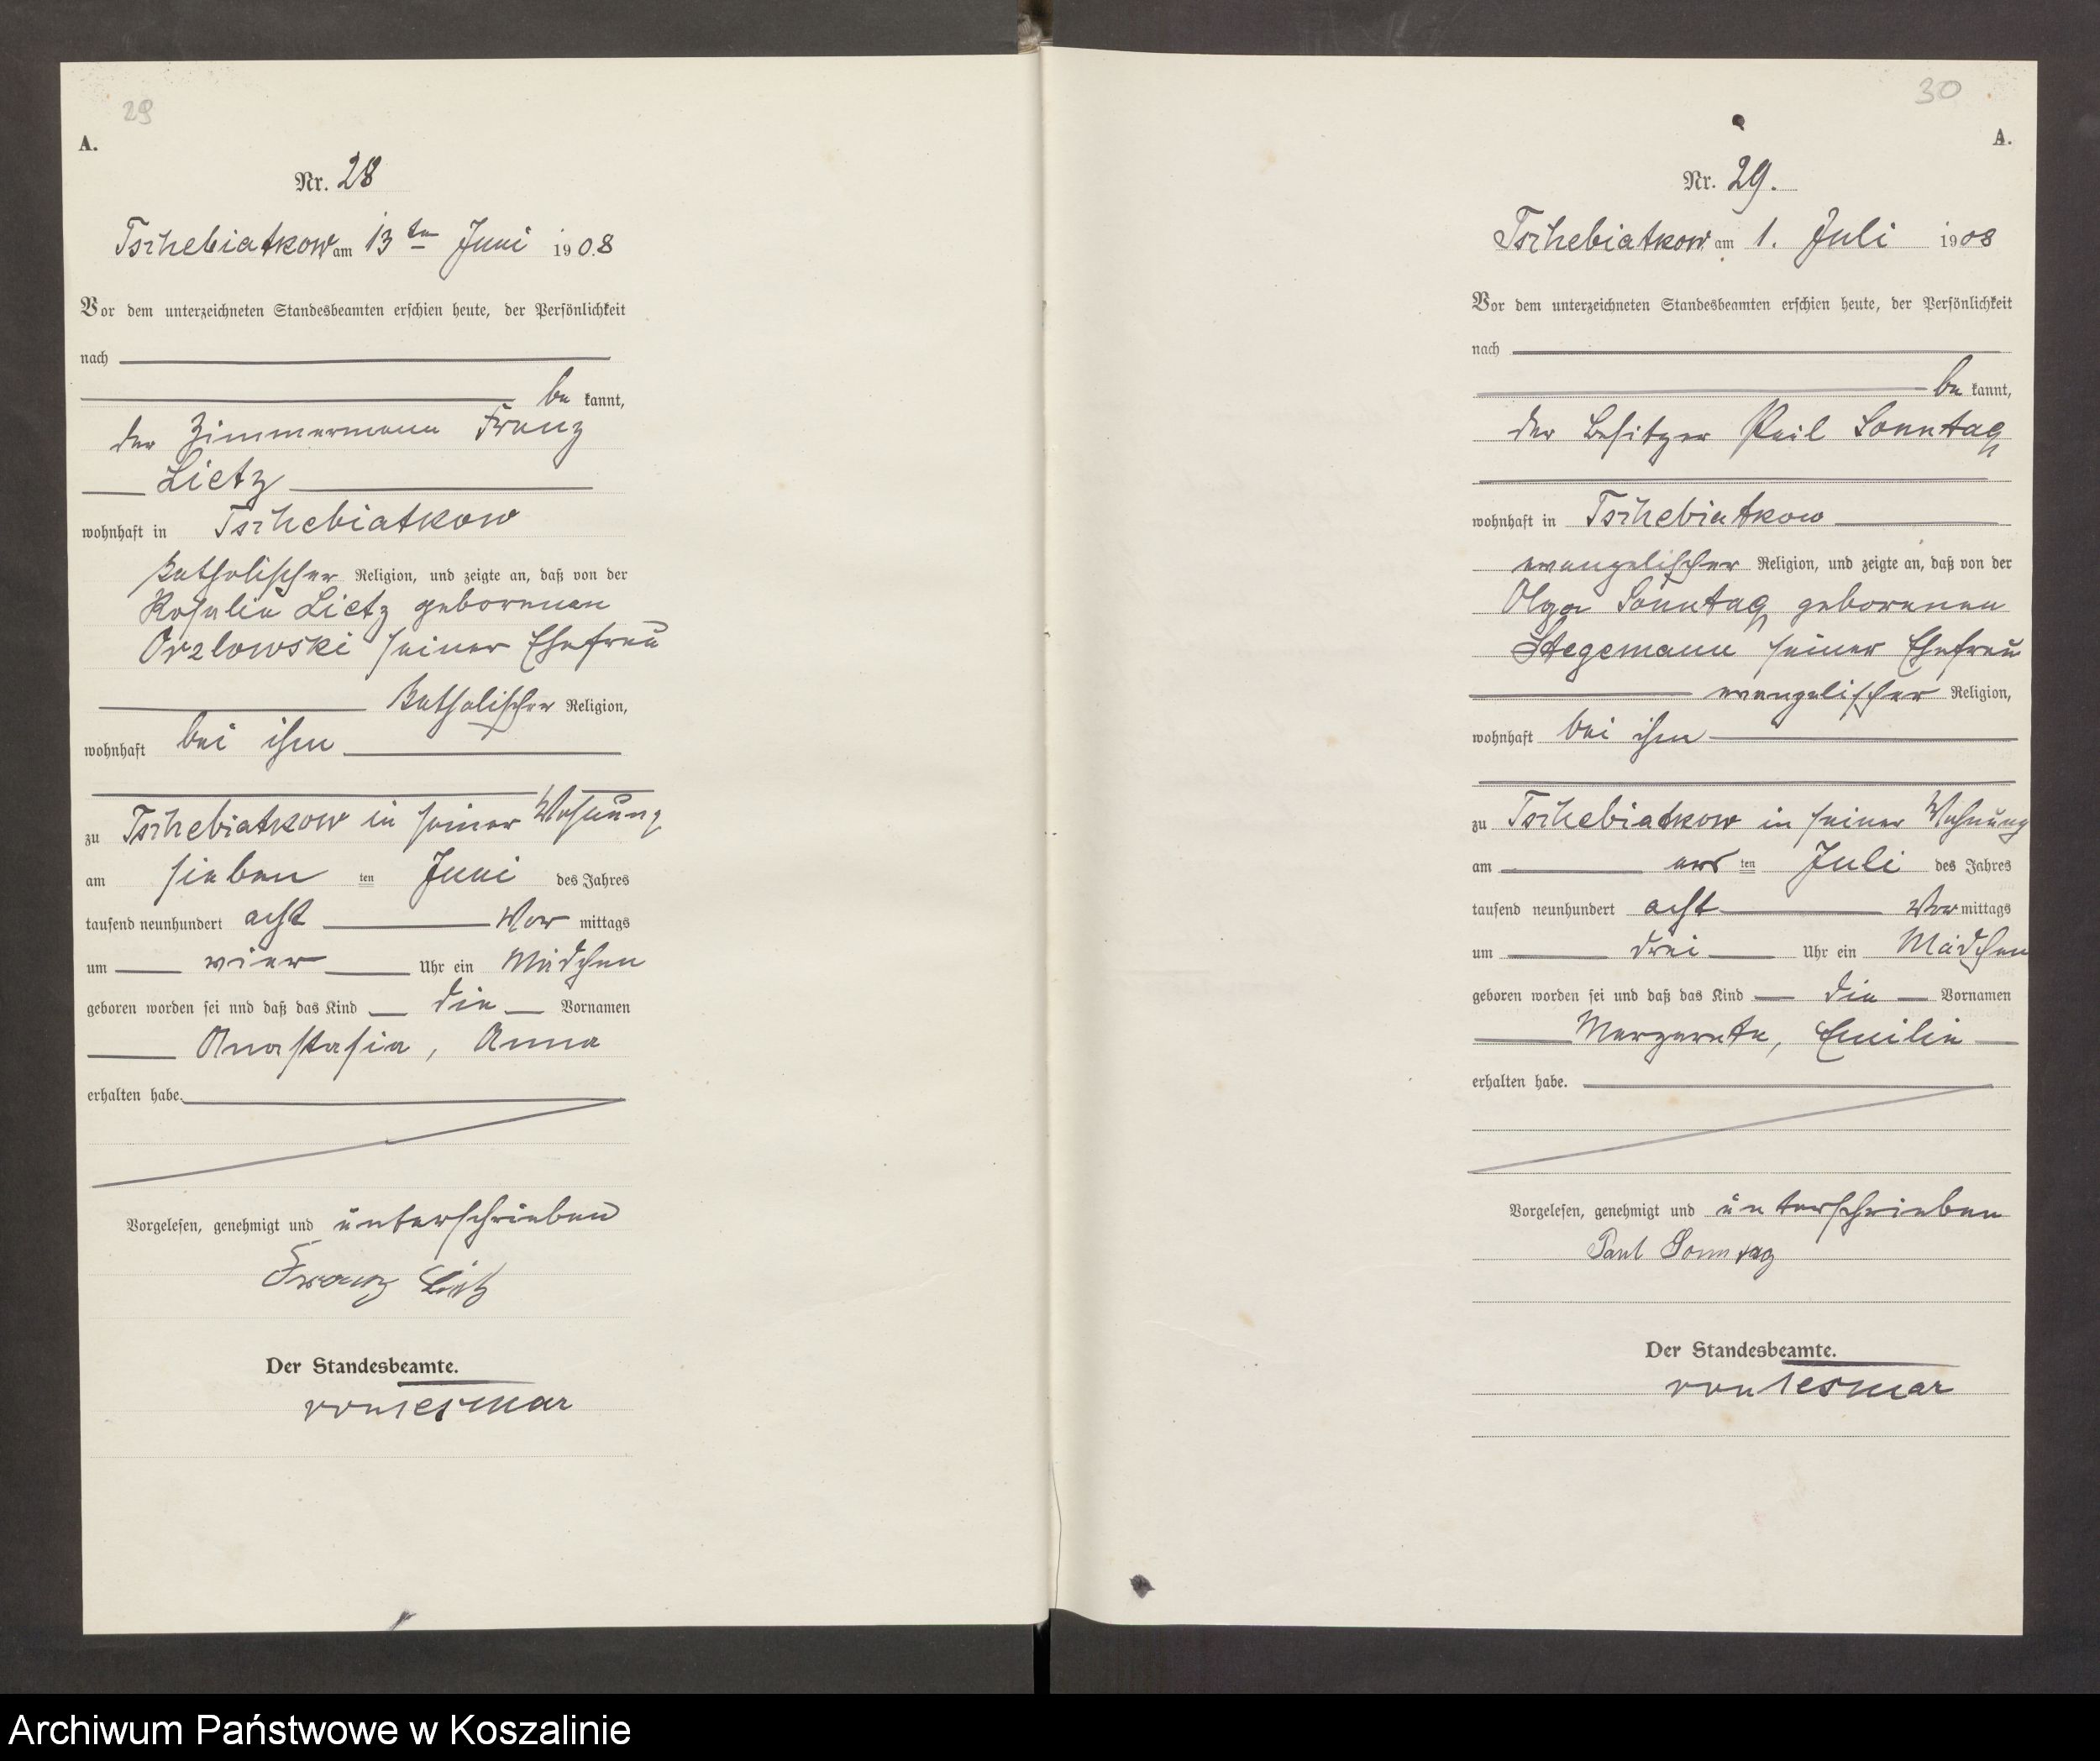 29
A.
Nr. 28
Tschebiatkow am 13ten Juni 1908
Vor dem unterzeichneten Standesbeamten erschien heute, der Persönlichkeit
nach
be kannt,
der Zimmermann Franz
Lietz
wohnhaft in Tschebiatkow
katholischer Religion, und zeigte an, daß von der
Rosalie Lietz geborenen
Orzlowski seiner Ehefrau
katholischer Religion,
wohnhaft bei ihm
zu Tschebiatkow in seiner Wohnung
am sieben ten Juni des Jahres
tausend neunhundert acht Vor mittags
um vier Uhr ein Mädchen
geboren worden sei nnd daß das Kind die Vornamen
Anastasia, Anna
erhalten habe.
Vorgelesen, genehmigt und unterschrieben
Franz Lietz
Der Standesbeamte.
von Tesmar
30
A.
Nr. 29.
Tschebiatkow am 1. Juli 1908
Vor dem unterzeichneten Standesbeamten erschien heute, der Persönlichkeit
nach
be kannt,
der Besitzer Paul Sonntag
wohnhaft in Tschebiatkow
evangelischer Religion, und zeigte an, daß von der
Olga Sonntag geborenen
Stegemann seiner Ehefrau
evangelischer Religion,
wohnhaft bei ihm
zu Tschebiatkow in seiner Wohnung
am ers ten Juli des Jahres
tausend neunhundert acht Vor mittags
um drei Uhr ein Mädchen
geboren worden sei und daß das Kind die Vornamen
Margarete, Emilie
erhalten habe.
Vorgelesen, genehmigt und unterschrieben
Paul Sonntag
Der Standesbeamte.
von Tesmar
Archiwum Państwowe w Koszalinie